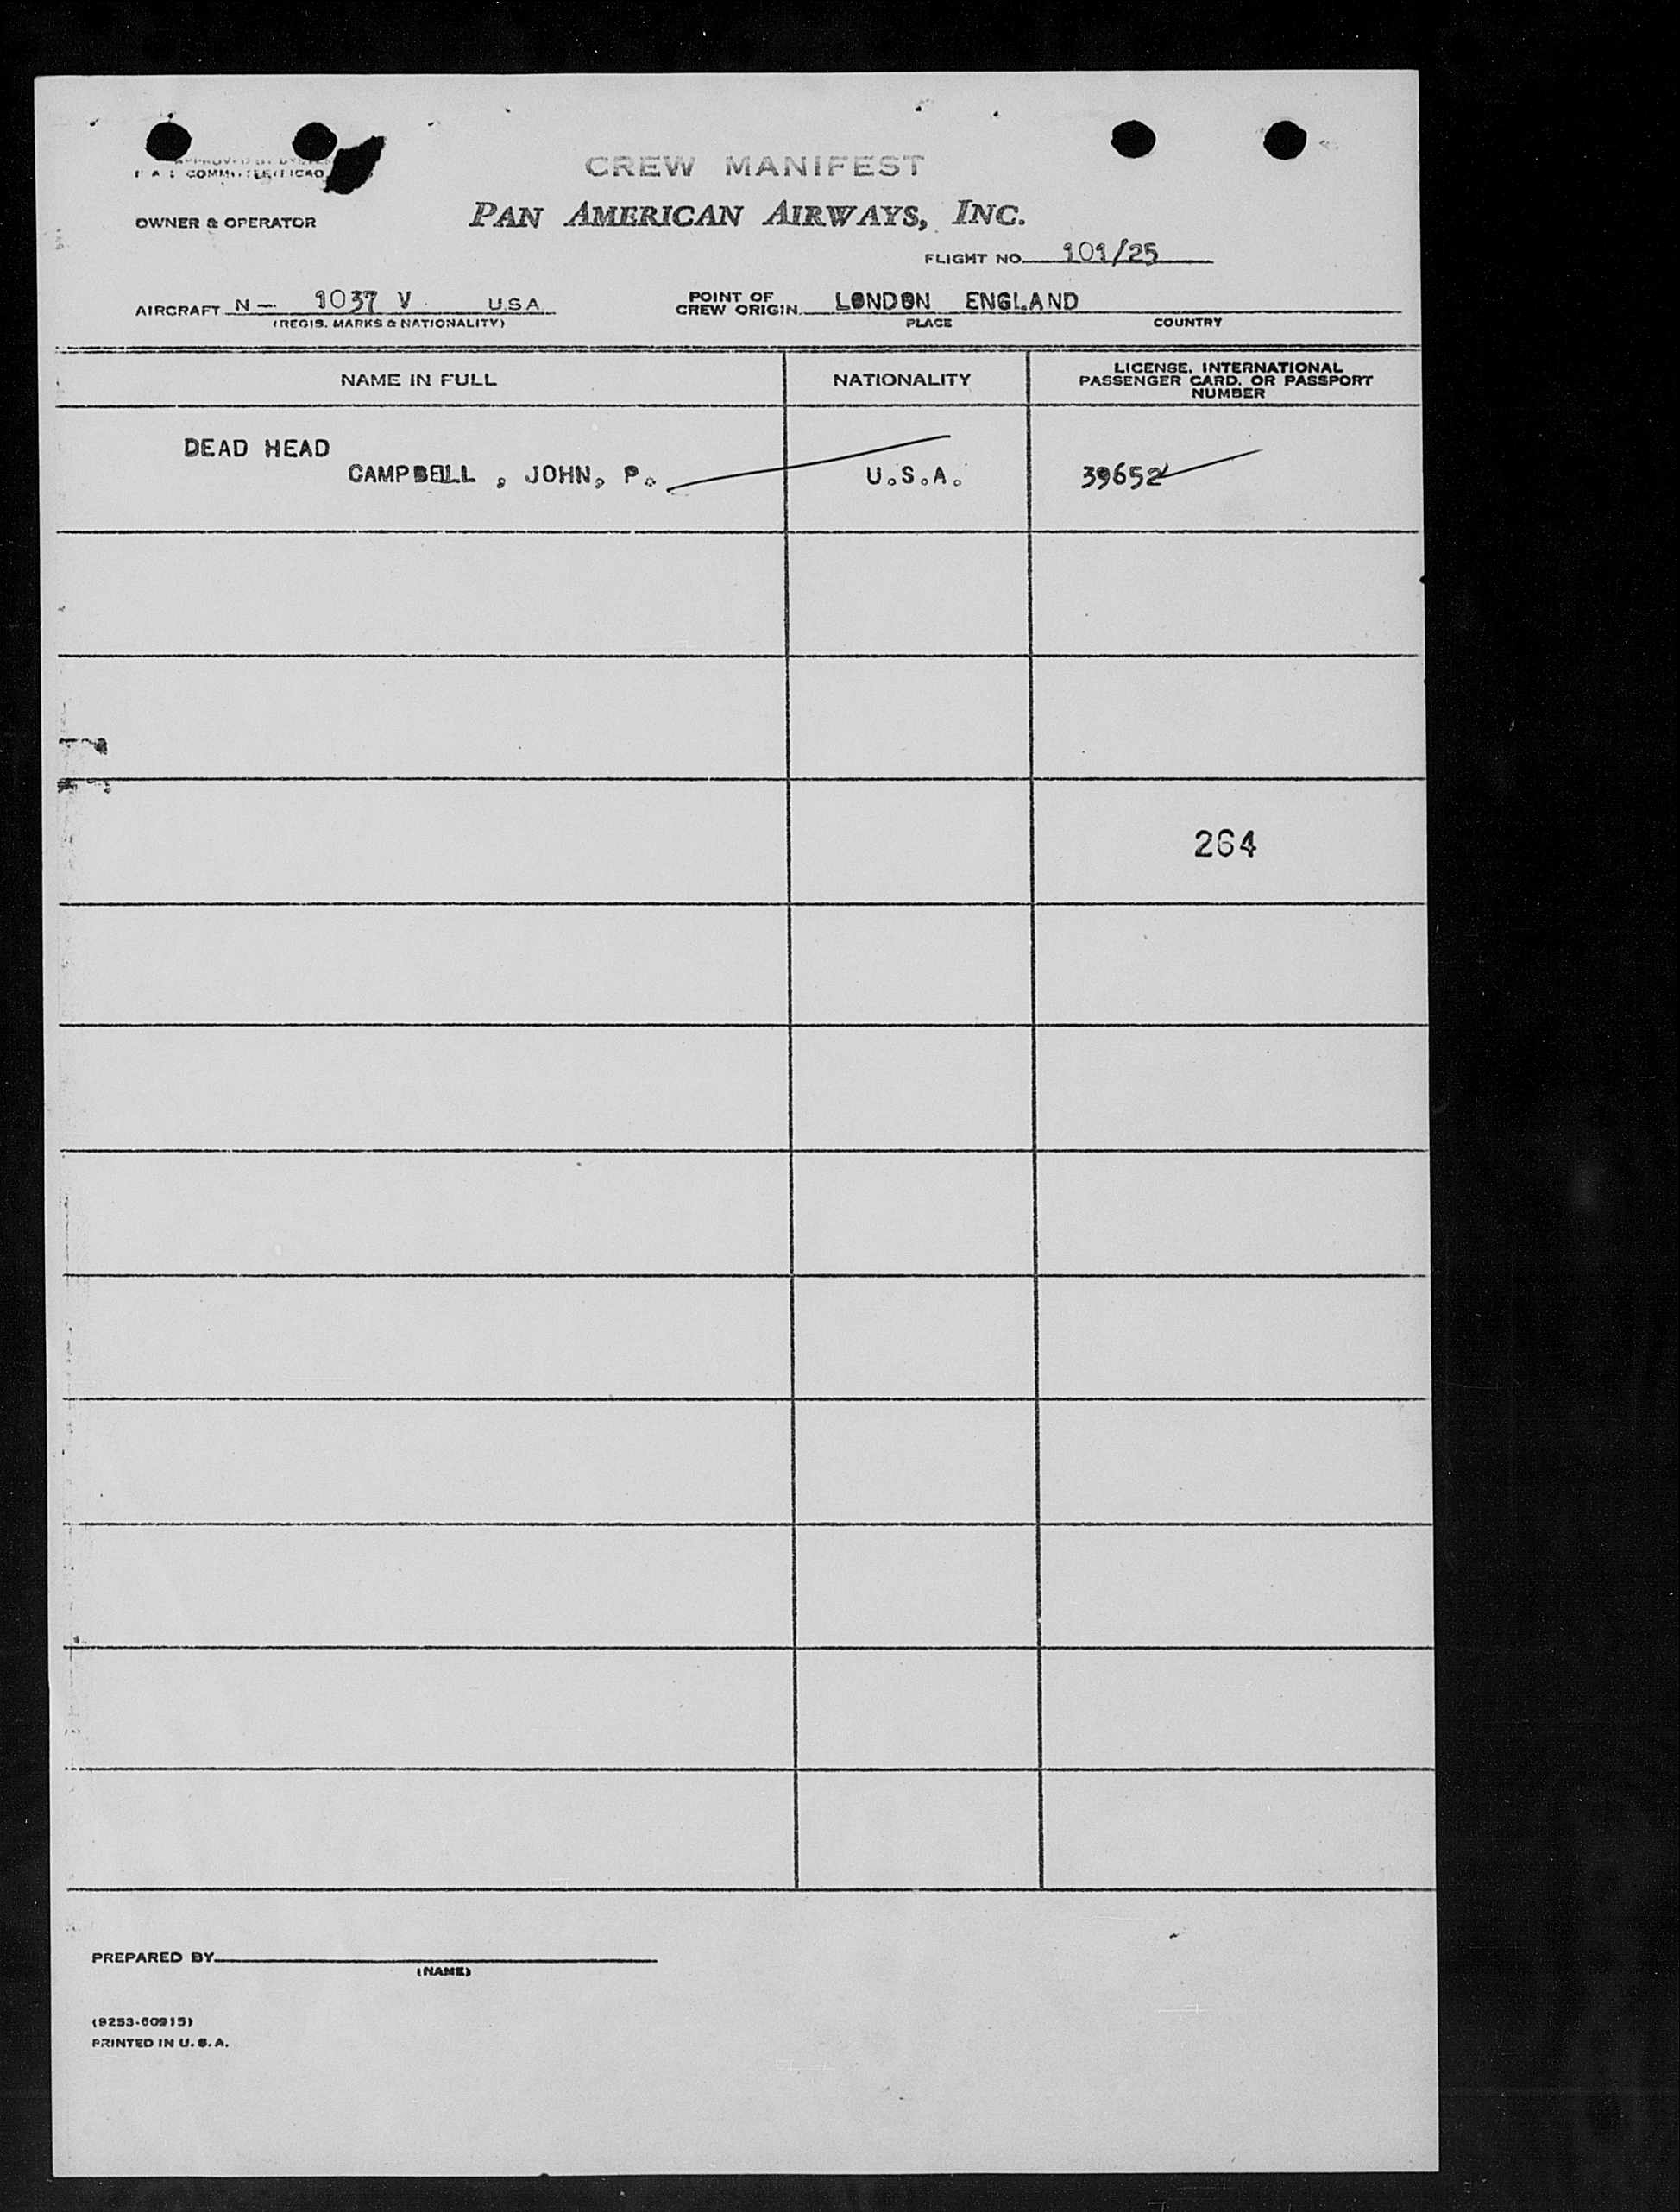 CREW MANIFEST
OWNER & OPERATOR PAN AMERICAN AIRWAYS, INC.
FLIGHT NO. 101/25
AIRCRAFT N- 1037 V USA POINT OF CREW ORIGIN LONDON ENGLAND
(REGIS. MARKS & NATIONALITY) PLACE COUNTRY
NAME IN FULL NATIONALITY LICENSE, INTERNATIONAL PASSENGER CARD, OR PASSPORT NUMBER
DEAD HEAD
CAMPBELL , JOHN, P. U.S.A. 39652
264
PREPARED BY
(NAME)
(9253-60915)
PRINTED IN U.S.A.